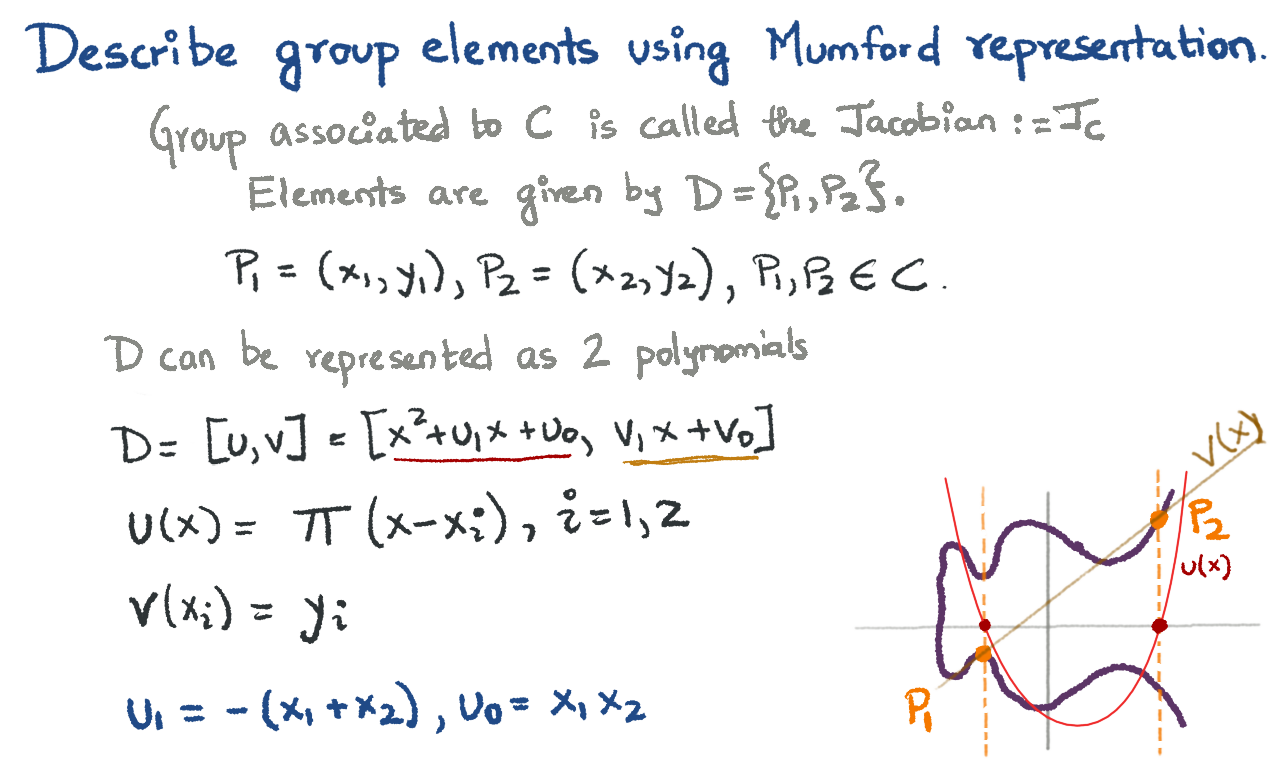 Describe group elements using Mumford representation.
Group associated to C is called the Jacobian := J_C
Elements are given by D = {P₁, P₂}.
P₁ = (x₁, y₁), P₂ = (x₂, y₂), P₁, P₂ ∈ C.
D can be represented as 2 polynomials
D = [u, v] = [x² + u₁x + u₀, v₁x + v₀]
u(x) = π (x - xᵢ), i = 1, 2
v(xᵢ) = yᵢ
u₁ = -(x₁ + x₂), u₀ = x₁ x₂
v(x)
P₂
u(x)
P₁